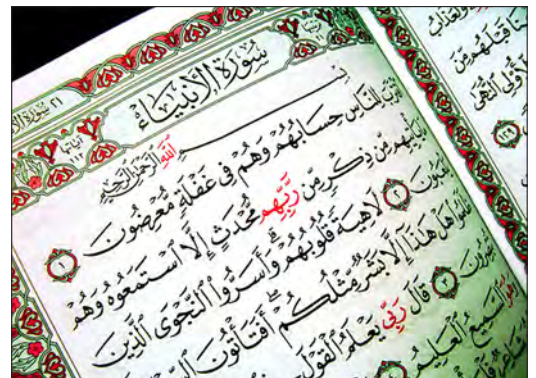 سُورَةُ الْأَنْبِيَاءِ
آيَاتُهَا ١١٢
بِسْمِ اللَّهِ الرَّحْمَٰنِ الرَّحِيمِ
اقْتَرَبَ لِلنَّاسِ حِسَابُهُمْ وَهُمْ فِي غَفْلَةٍ مُّعْرِضُونَ ١
يَأْتِيهِم مِّن ذِكْرٍ مِّن رَّبِّهِم مُّحْدَثٍ إِلَّا اسْتَمَعُوهُ وَهُمْ
يَلْعَبُونَ ٢ لَاهِيَةً قُلُوبُهُمْ وَأَسَرُّوا النَّجْوَى الَّذِينَ
ظَلَمُوا هَلْ هَٰذَا إِلَّا بَشَرٌ مِّثْلُكُمْ أَفَتَأْتُونَ
تُبْصِرُونَ ٣ قَالَ رَبِّي يَعْلَمُ الْقَوْلَ
السَّمِيعُ الْعَلِيمُ
وَلَعَذَابُ
قَبْلَهُم مِّنَ
النُّهَى